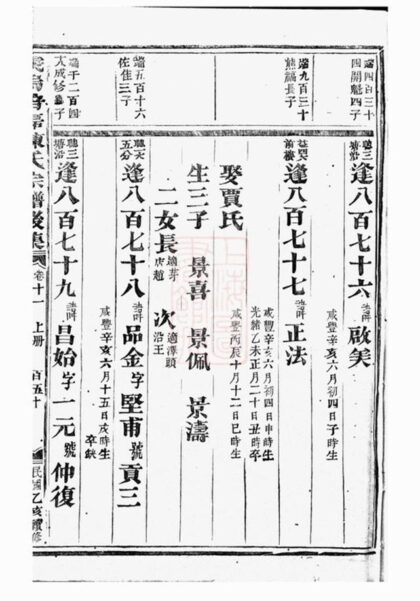 端四百三十
四開魁四子
聽三
塘沿
逢八百七十六
啟美
咸豐辛亥六月初四日子時生
端九百三十
熊鵬長子
逢八百七十七
正法
咸豐辛亥六月初四申時生
光緒乙未正月二十日丑時卒
娶賈氏
咸豐丙辰十月十二日巳時生
生三子 景喜 景佩 景濤
二女長
次
端五百十六
佐佳三子
聽六
五分
逢八百七十八
品金字堅甫號貢三
咸豐辛亥六月十五日戌時生
卒缺
端千二百四
大成修長子
聽三
塘沿
逢八百七十九
昌始字一元號仲復
陳氏宗譜後集
卷十一 上册
百五十
民國乙亥續修